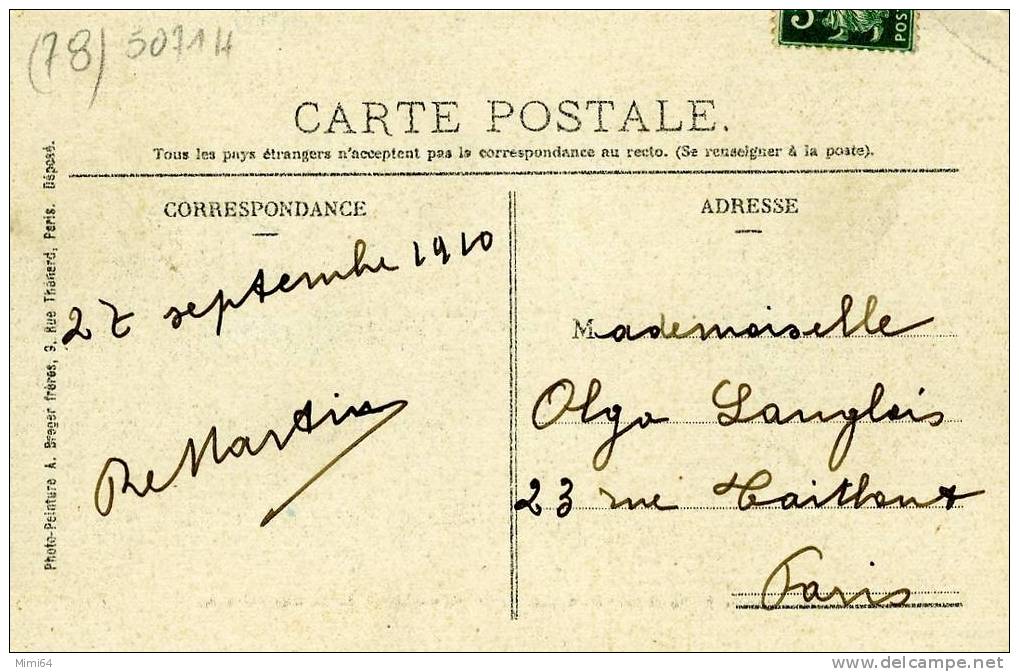 (78) 50714
POS
CARTE POSTALE.
Tous les pays étrangers n'acceptent pas la correspondance au recto. (Se renseigner à la poste).
CORRESPONDANCE
27 septembre 1910
Martin
ADRESSE
Mademoiselle
Olga Langlois
23 rue Taitbout
Paris
Photo-Peinture A. Breger frères, 9, Rue Thénard, Paris. Déposé.
Mimi64
delcampe.net